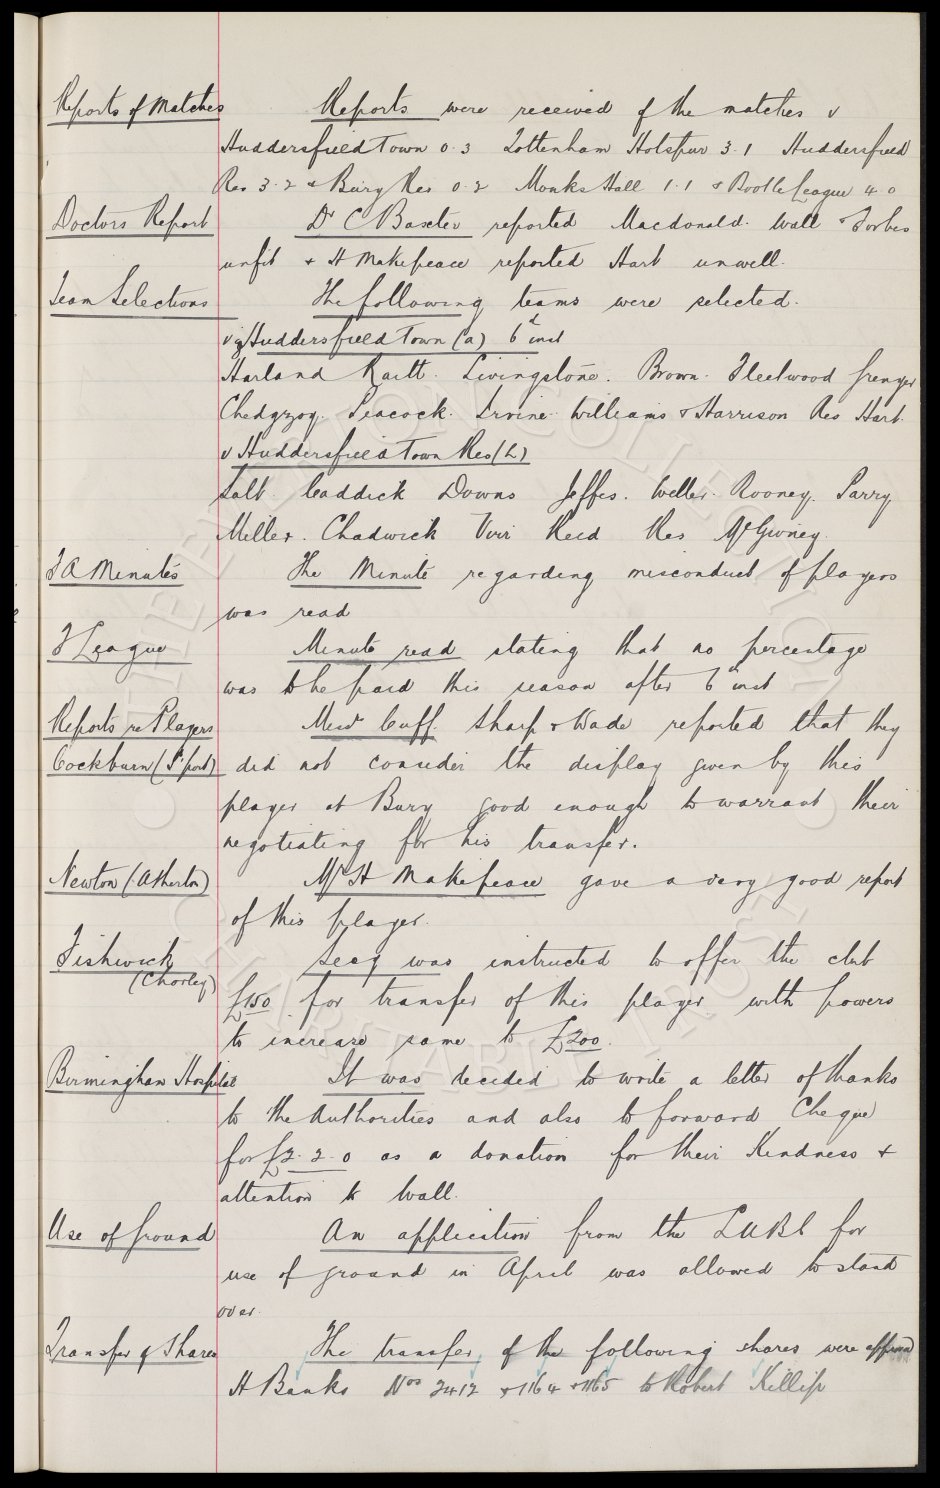 Reports of Matches Reports were received of the matches v
Huddersfield Town 0.3 Tottenham Hotspur 3.1 Huddersfield
Res 3.2 & Bury Res 0.2 Monks Hall 1.1 & Bootle League 4 0
Doctors Report Dr C Baxter reported Macdonald. Wall & Forbes
unfit & H Makepeace reported Hart unwell.
Team Selections The following teams were selected.
v Huddersfield Town (a) 6th inst
Harland Raitt. Livingstone. Brown. Fleetwood Grenyer
Chedgzoy. Peacock. Irvine. Williams & Harrison Res Hart.
v Huddersfield Town Res (L)
Salt. Caddick Downs Jeffs. Weller. Rooney. Parry
Miller. Chadwick Virr Reid Res McGivney.
F A Minutes The Minute regarding misconduct of players
was read
F League Minute read stating that no percentage
was to be paid this season after 6th inst
Reports re Players Messrs Cuff. Sharp & Wade reported that they
Cockburn (S'port) did not consider the display given by this
player at Bury good enough to warrant their
negotiating for his transfer.
Newton (Atherton) Mr H Makepeace gave a very good report
of this player.
Fishwick Secy was instructed to offer the club
(Chorley) £150 for transfer of this player with powers
to increase same to £200.
Birmingham Hospital It was decided to write a letter of thanks
to the Authorities and also to forward Cheque
for £2. 2. 0 as a donation for their Kindness &
attention to Wall.
Use of Ground An application from the for
use of ground in April was allowed to stand
over.
Transfer of Shares The transfer of the following shares were approved
H Banks Nos 2412 & 1164 & 1165 to Robert Killip
THE EVERTON COLLECTION
CHARITABLE TRUST